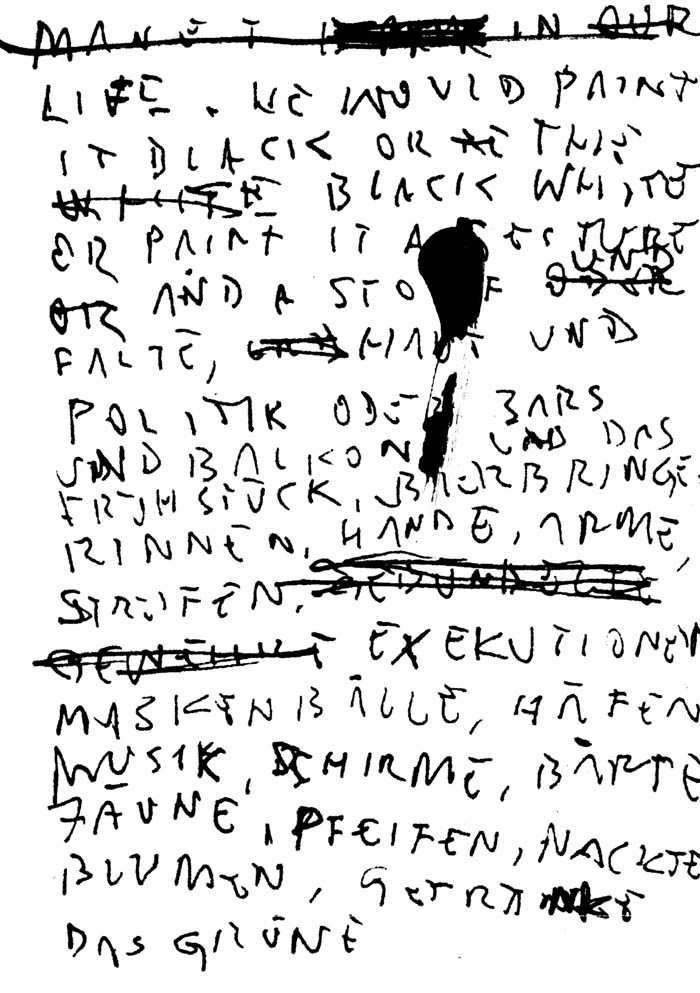 MANET IN OUR
LIFE. WE WOULD PAINT
IT BLACK OR THE
WHITE BLACK WHITE
OR PAINT IT A GESTURE
OR AND A STOFF UND
FALTE, HAUT UND
POLITIK ODER BARS
UND BALKON UND DAS
FRÜHSTÜCK, BIERBRINGE
RINNEN, HÄNDE, ARME,
STREIFEN,
EXEKUTIONEN
MASKENBÄLLE, HÄFEN
MUSIK, SCHIRME, BÄRTE
ZÄUNE, PFEIFEN, NACKTE
BLUMEN, GETRÄNKE
DAS GRÜNE